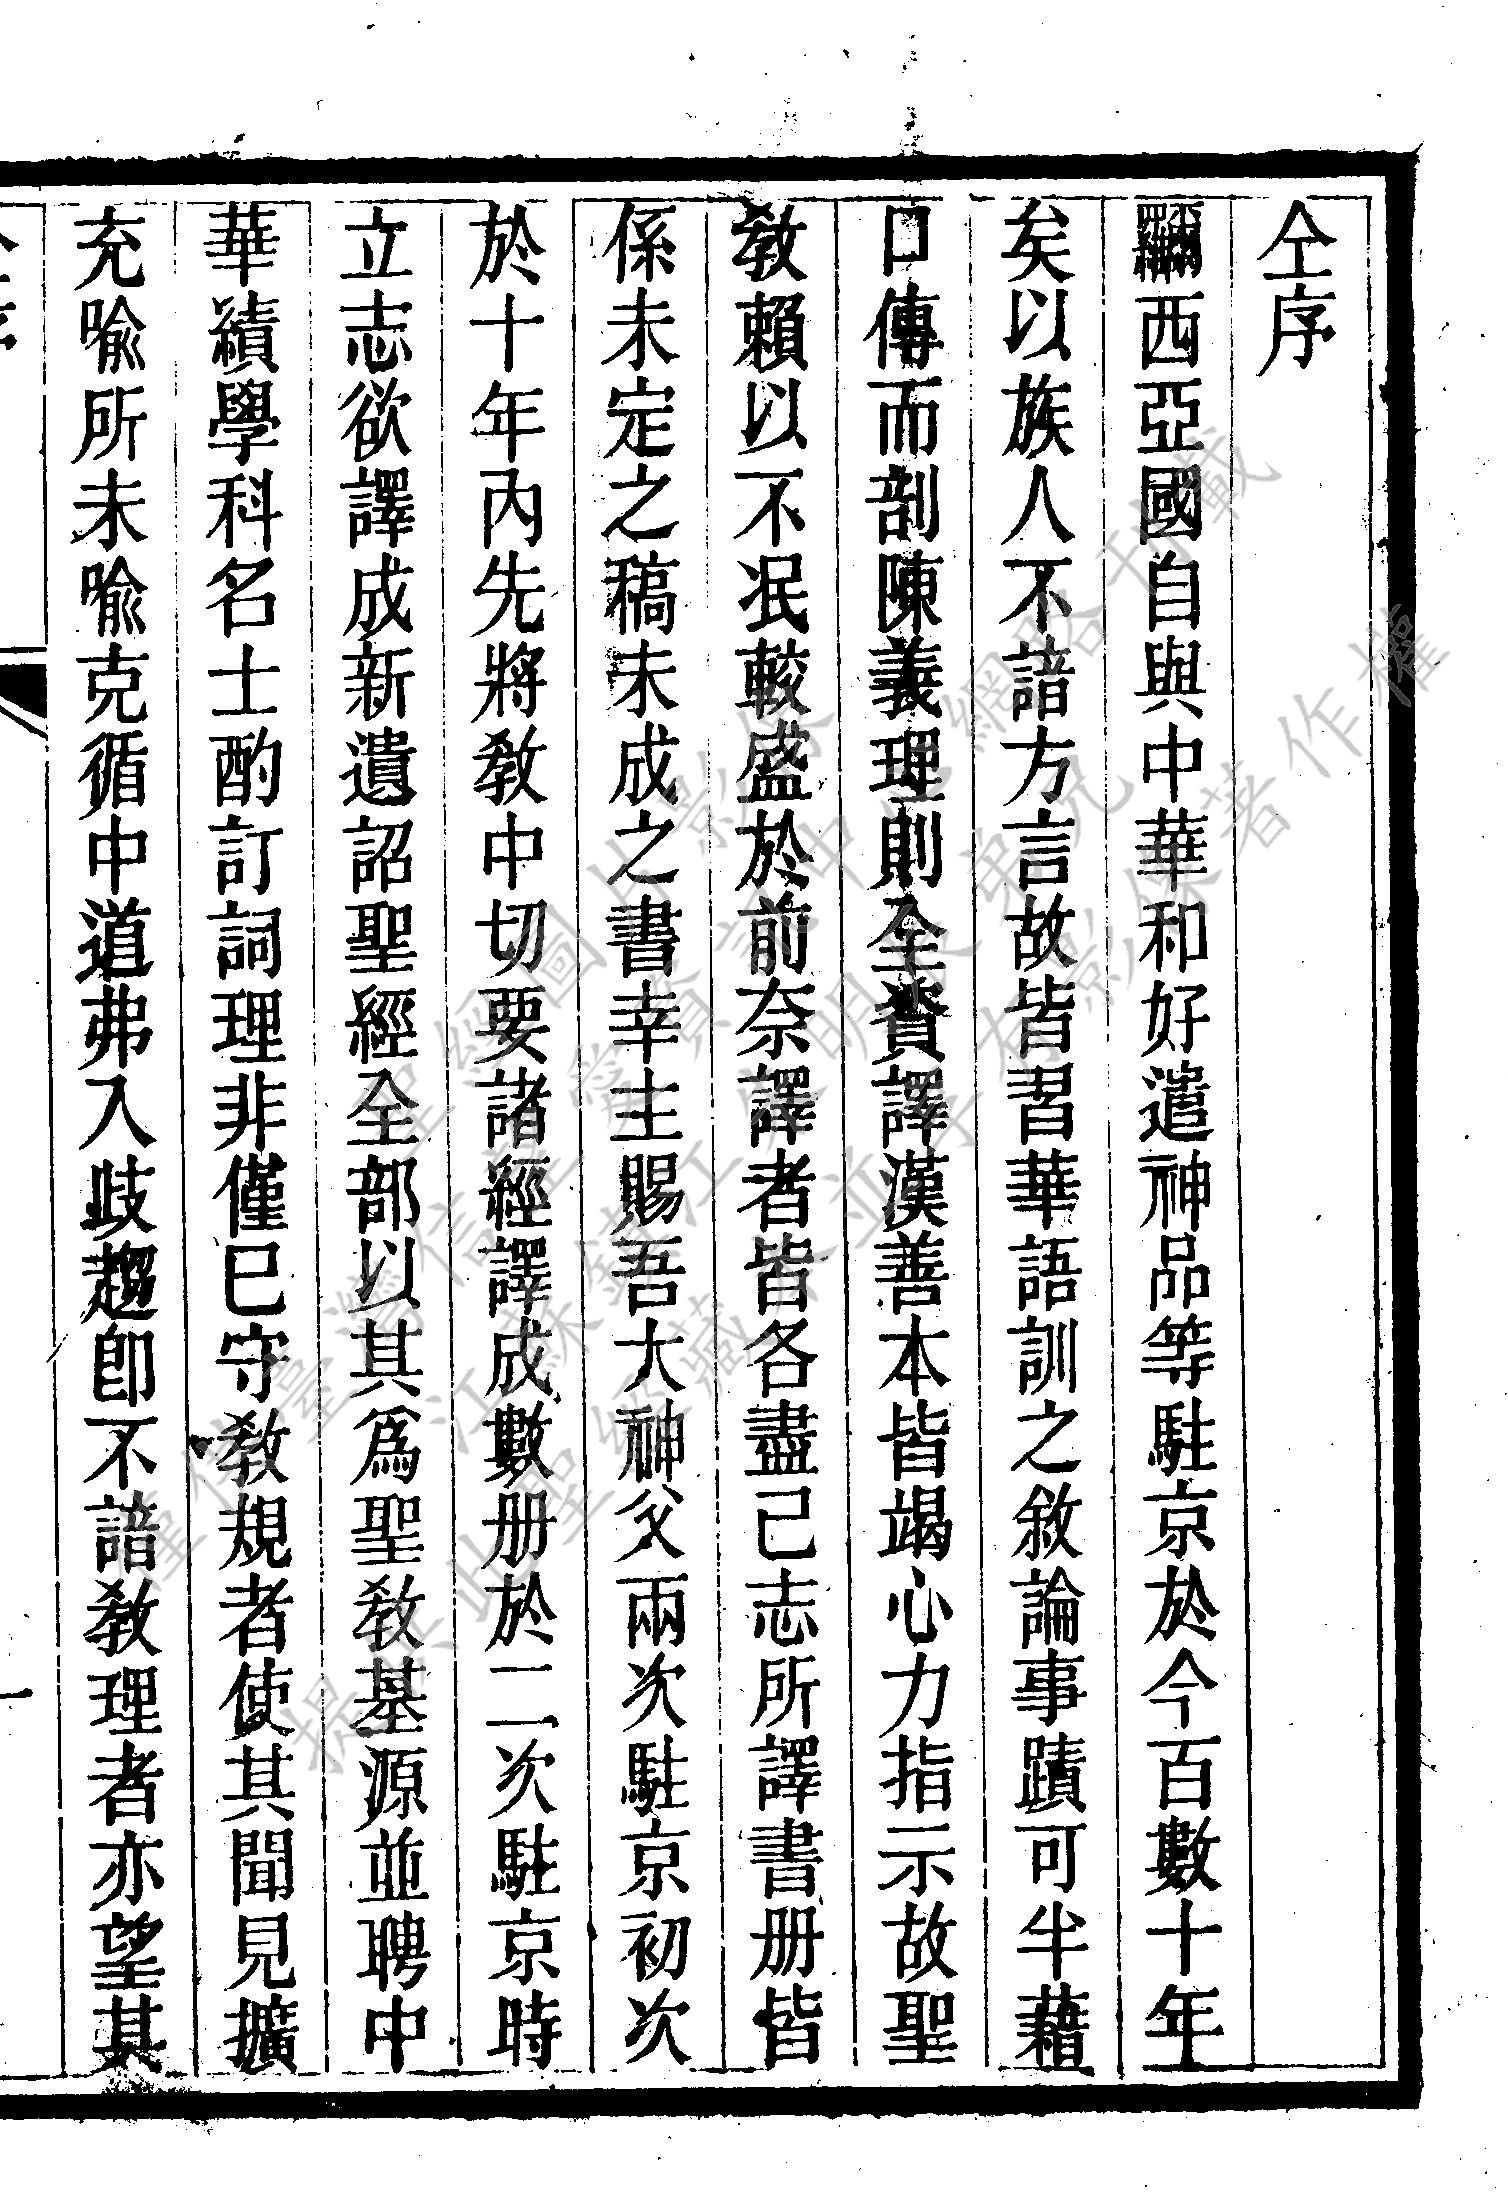 仝序
西亞國自與中華和好遣神品等駐京於今百數十年
矣以族人不諳方言故皆習華語訓之敘論事蹟可半藉
口傳而剖陳義理則全資譯漢善本皆竭心力指示故聖
敎賴以不泯較盛於前奈譯者皆各盡己志所譯書册皆
係未定之稿未成之書幸主賜吾大神父兩次駐京初次
於十年內先將敎中切要諸經譯成數册於二次駐京時
立志欲譯成新遺詔聖經全部以其爲聖敎基源並聘中
華績學科名士酌訂詞理非僅巳守敎規者使其聞見擴
充喻所未喻克循中道弗入歧趨卽不諳敎理者亦望其